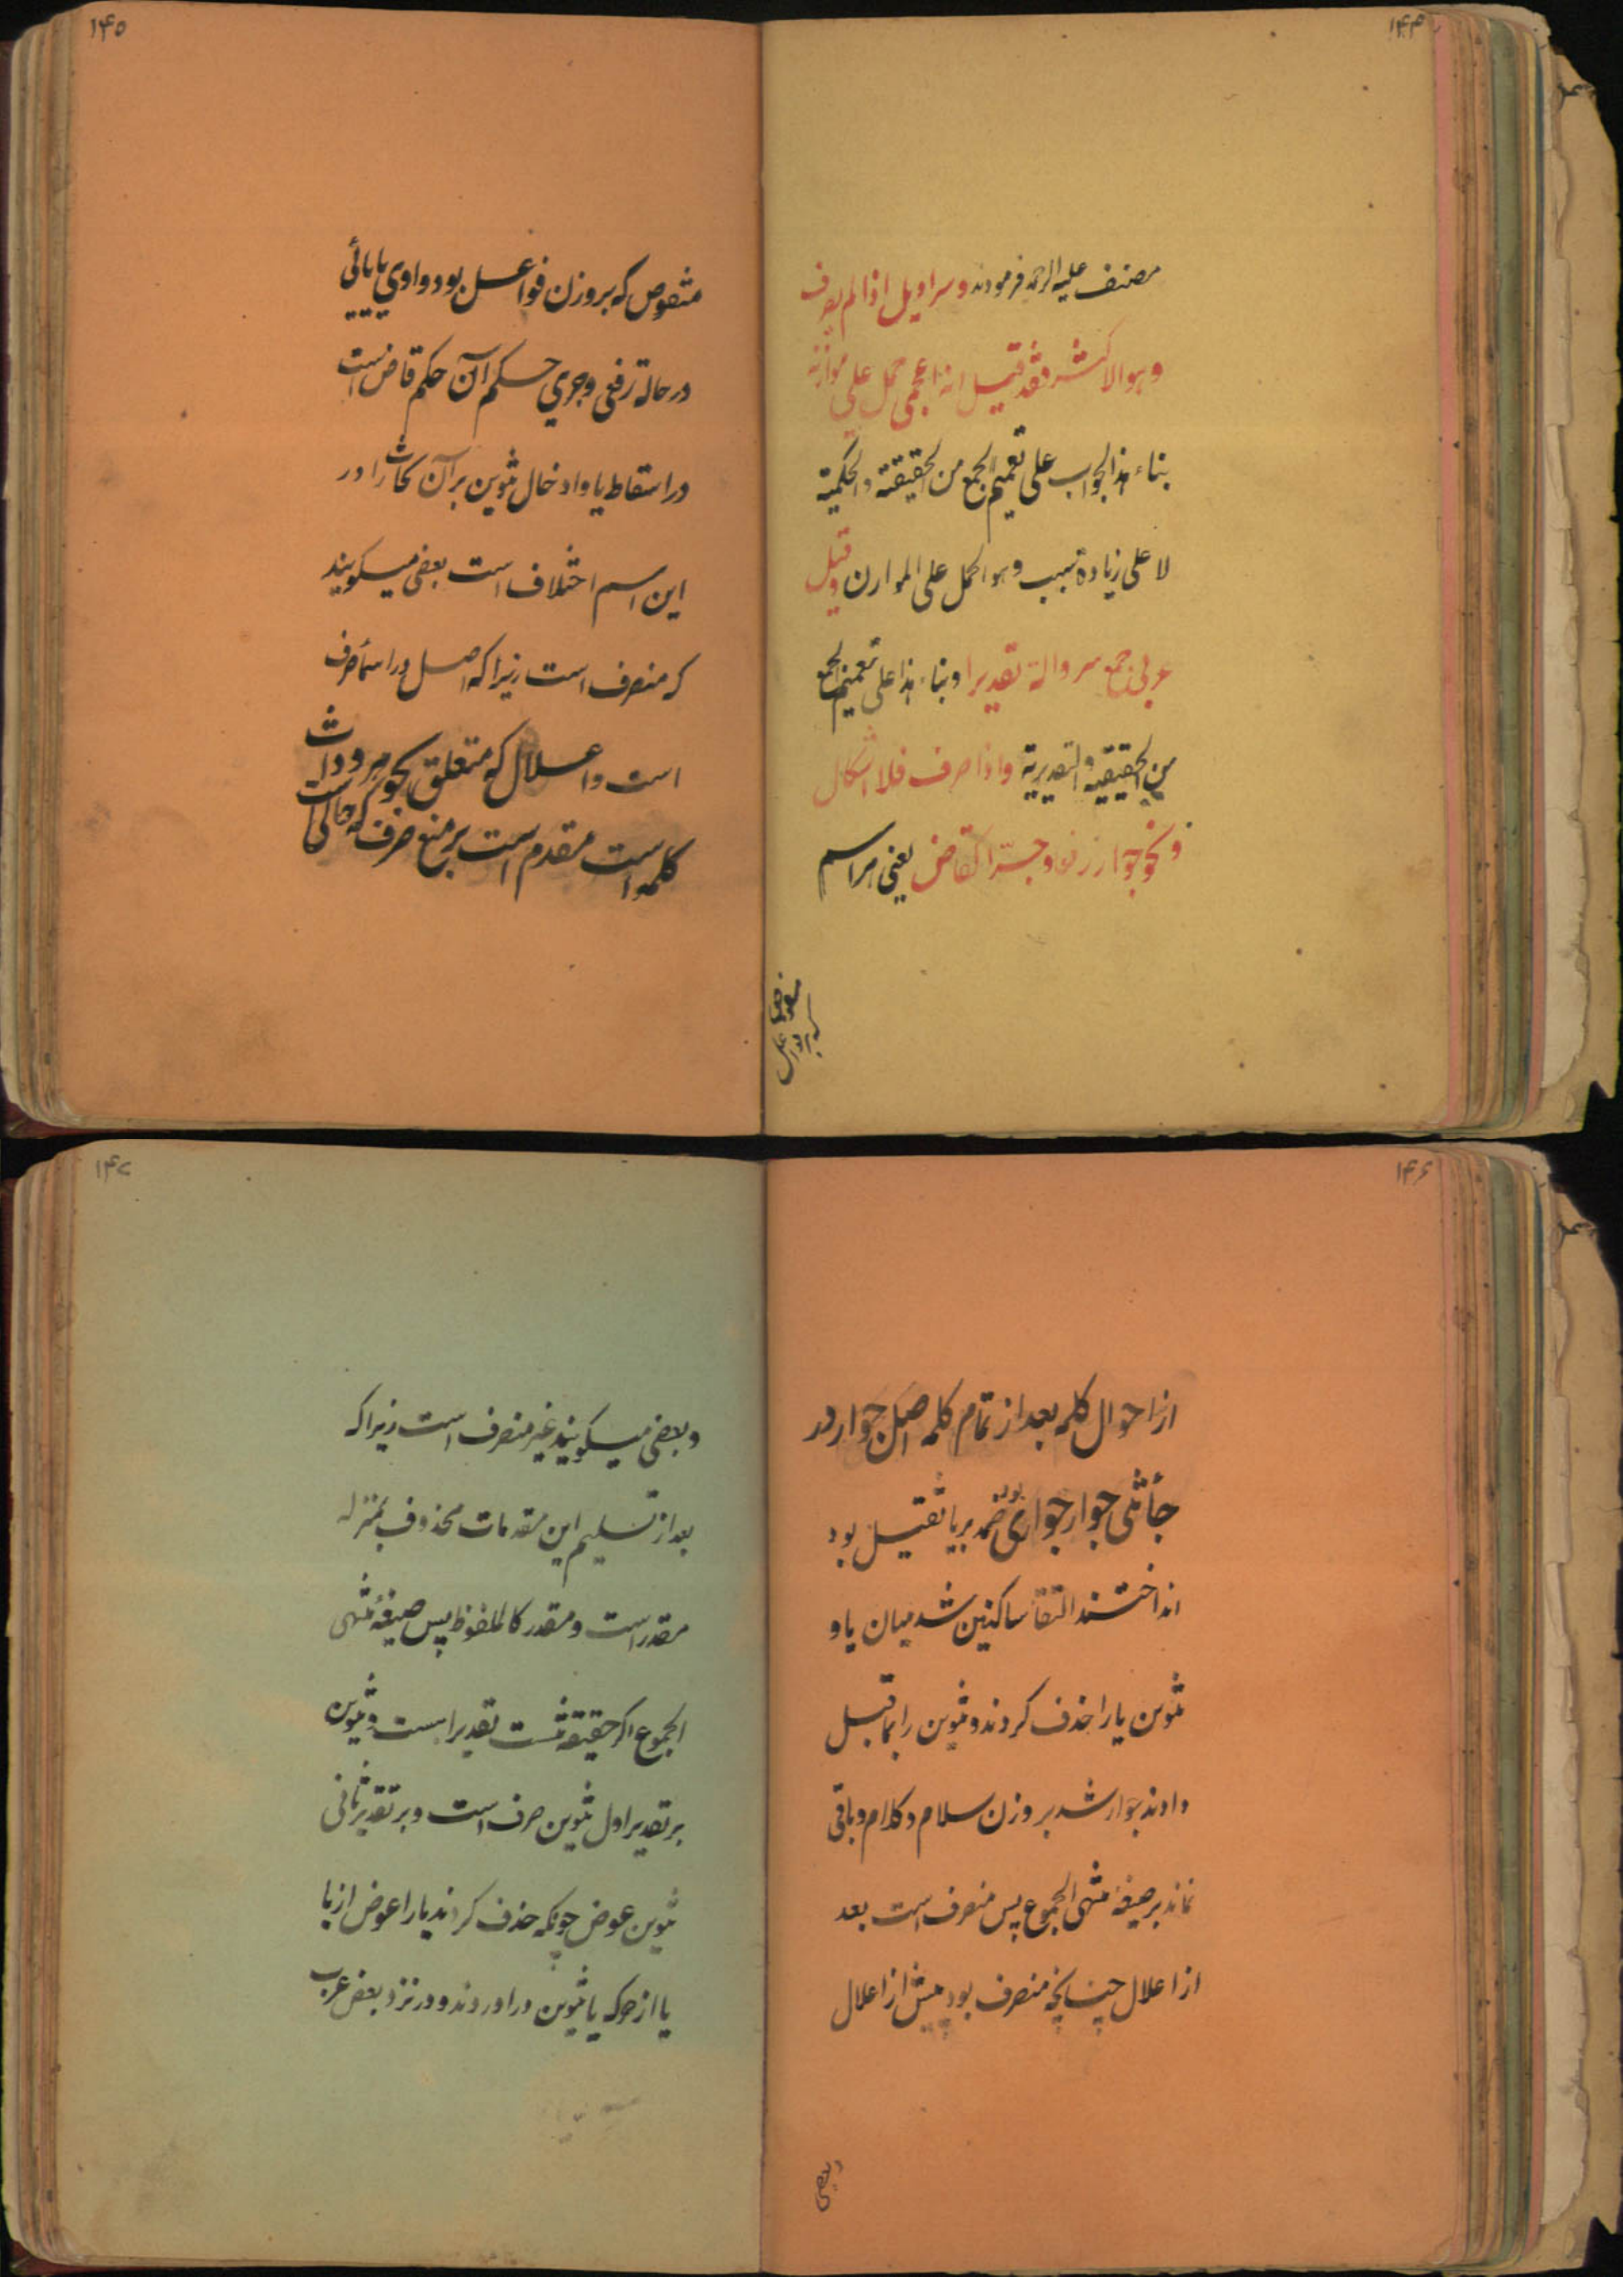 ۱۴۴
مصنف علیه الرحمه فرمودند و سراویل اذا لم یصرف
و هو الاکثر فقد قیل انه اعجمی حمل علی موازنه
بناء هذا الجواب علی تعمیم الجمع من الحقیقة و الحکمیة
لا علی زیادة سبب و هو الحمل علی الموازن و قیل
عربی جمع سروالة تقدیرا و بناء هذا علی تعمیم الجمع
من الحقیقیه و التقدیریة و اذا صرف فلا اشکال
و نحو جوار رفعا و جرا کقاض یعنی هر اسم
۱۴۵
منقوص که بروزن فواعل بود واوی یا یائی
در حالة رفعی و جری حکم آن حکم قاض است
در اسقاط یا و ادخال تنوین برآن نحات را در
این اسم اختلاف است بعضی میکویند
که منصرف است زیرا که اصل در اسما صرف
است و اعلال که متعلق بجوهر و ذات
کلمه است مقدم است بر منع صرف که حالی است
۱۴۶
از احوال کلمه بعد از تمام کلمه اصل جوار در
جأتنی جوار جواری بود ضمه بر یا ثقیل بود
انداختند التقأ ساکنین شد میان یا و
تنوین یا را حذف کردند و تنوین را بما قبل
دادند جوار شد بر وزن سلام و کلام و باقی
نماند بر صیغه منتهی الجموع پس منصرف است بعد
از اعلال چنانچه منصرف بود پیش از اعلال
وبعضی
۱۴۷
و بعضی میکویند غیر منصرف است زیرا که
بعد از تسلیم این مقدمات محذوف بمنزله
مقدر است و مقدر کالملفوظ پس صیغهٔ منتهی
الجموع اکر حقیقة نیست تقدیرا است و تنوین
بر تقدیر اول تنوین صرف است و بر تقدیر ثانی
تنوین عوض چونکه حذف کردند یا را عوض از یا
یا از حرکه یا تنوین در اوردند و در نزد بعض عرب